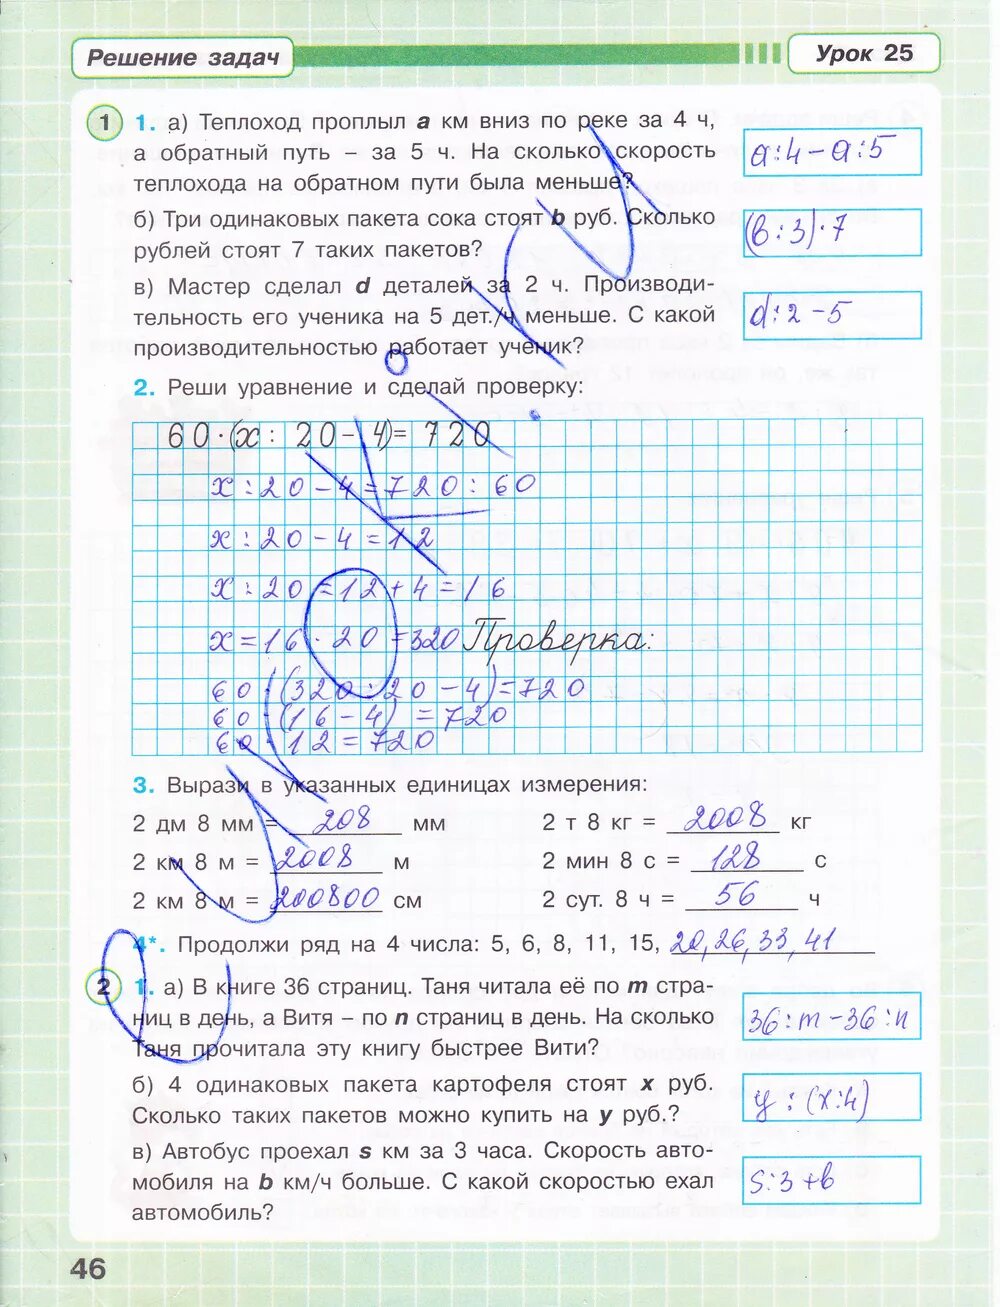 Решение задач
Урок 25
1 1. а) Теплоход проплыл a км вниз по реке за 4 ч,
а обратный путь – за 5 ч. На сколько скорость
теплохода на обратном пути была меньше?
a:4-a:5
б) Три одинаковых пакета сока стоят b руб. Сколько
рублей стоят 7 таких пакетов?
(b:3)·7
в) Мастер сделал d деталей за 2 ч. Производи-
тельность его ученика на 5 дет./ч меньше. С какой
производительностью работает ученик?
d:2-5
2. Реши уравнение и сделай проверку:
60·(x:20-4)=720
x:20-4=720:60
x:20-4=12
x:20=12+4=16
x=16·20=320 Проверка:
60·(320:20-4)=720
60·(16-4)=720
60·12=720
3. Вырази в указанных единицах измерения:
2 дм 8 мм = 208 мм 2 т 8 кг = 2008 кг
2 км 8 м = 2008 м 2 мин 8 с = 128 с
2 км 8 м = 200800 см 2 сут. 8 ч = 56 ч
4*. Продолжи ряд на 4 числа: 5, 6, 8, 11, 15, 20, 26, 33, 41
2 1. а) В книге 36 страниц. Таня читала её по m стра-
ниц в день, а Витя – по n страниц в день. На сколько
Таня прочитала эту книгу быстрее Вити?
36:m-36:n
б) 4 одинаковых пакета картофеля стоят x руб.
Сколько таких пакетов можно купить на y руб.?
y:(x:4)
в) Автобус проехал s км за 3 часа. Скорость авто-
мобиля на b км/ч больше. С какой скоростью ехал
автомобиль?
s:3+b
46